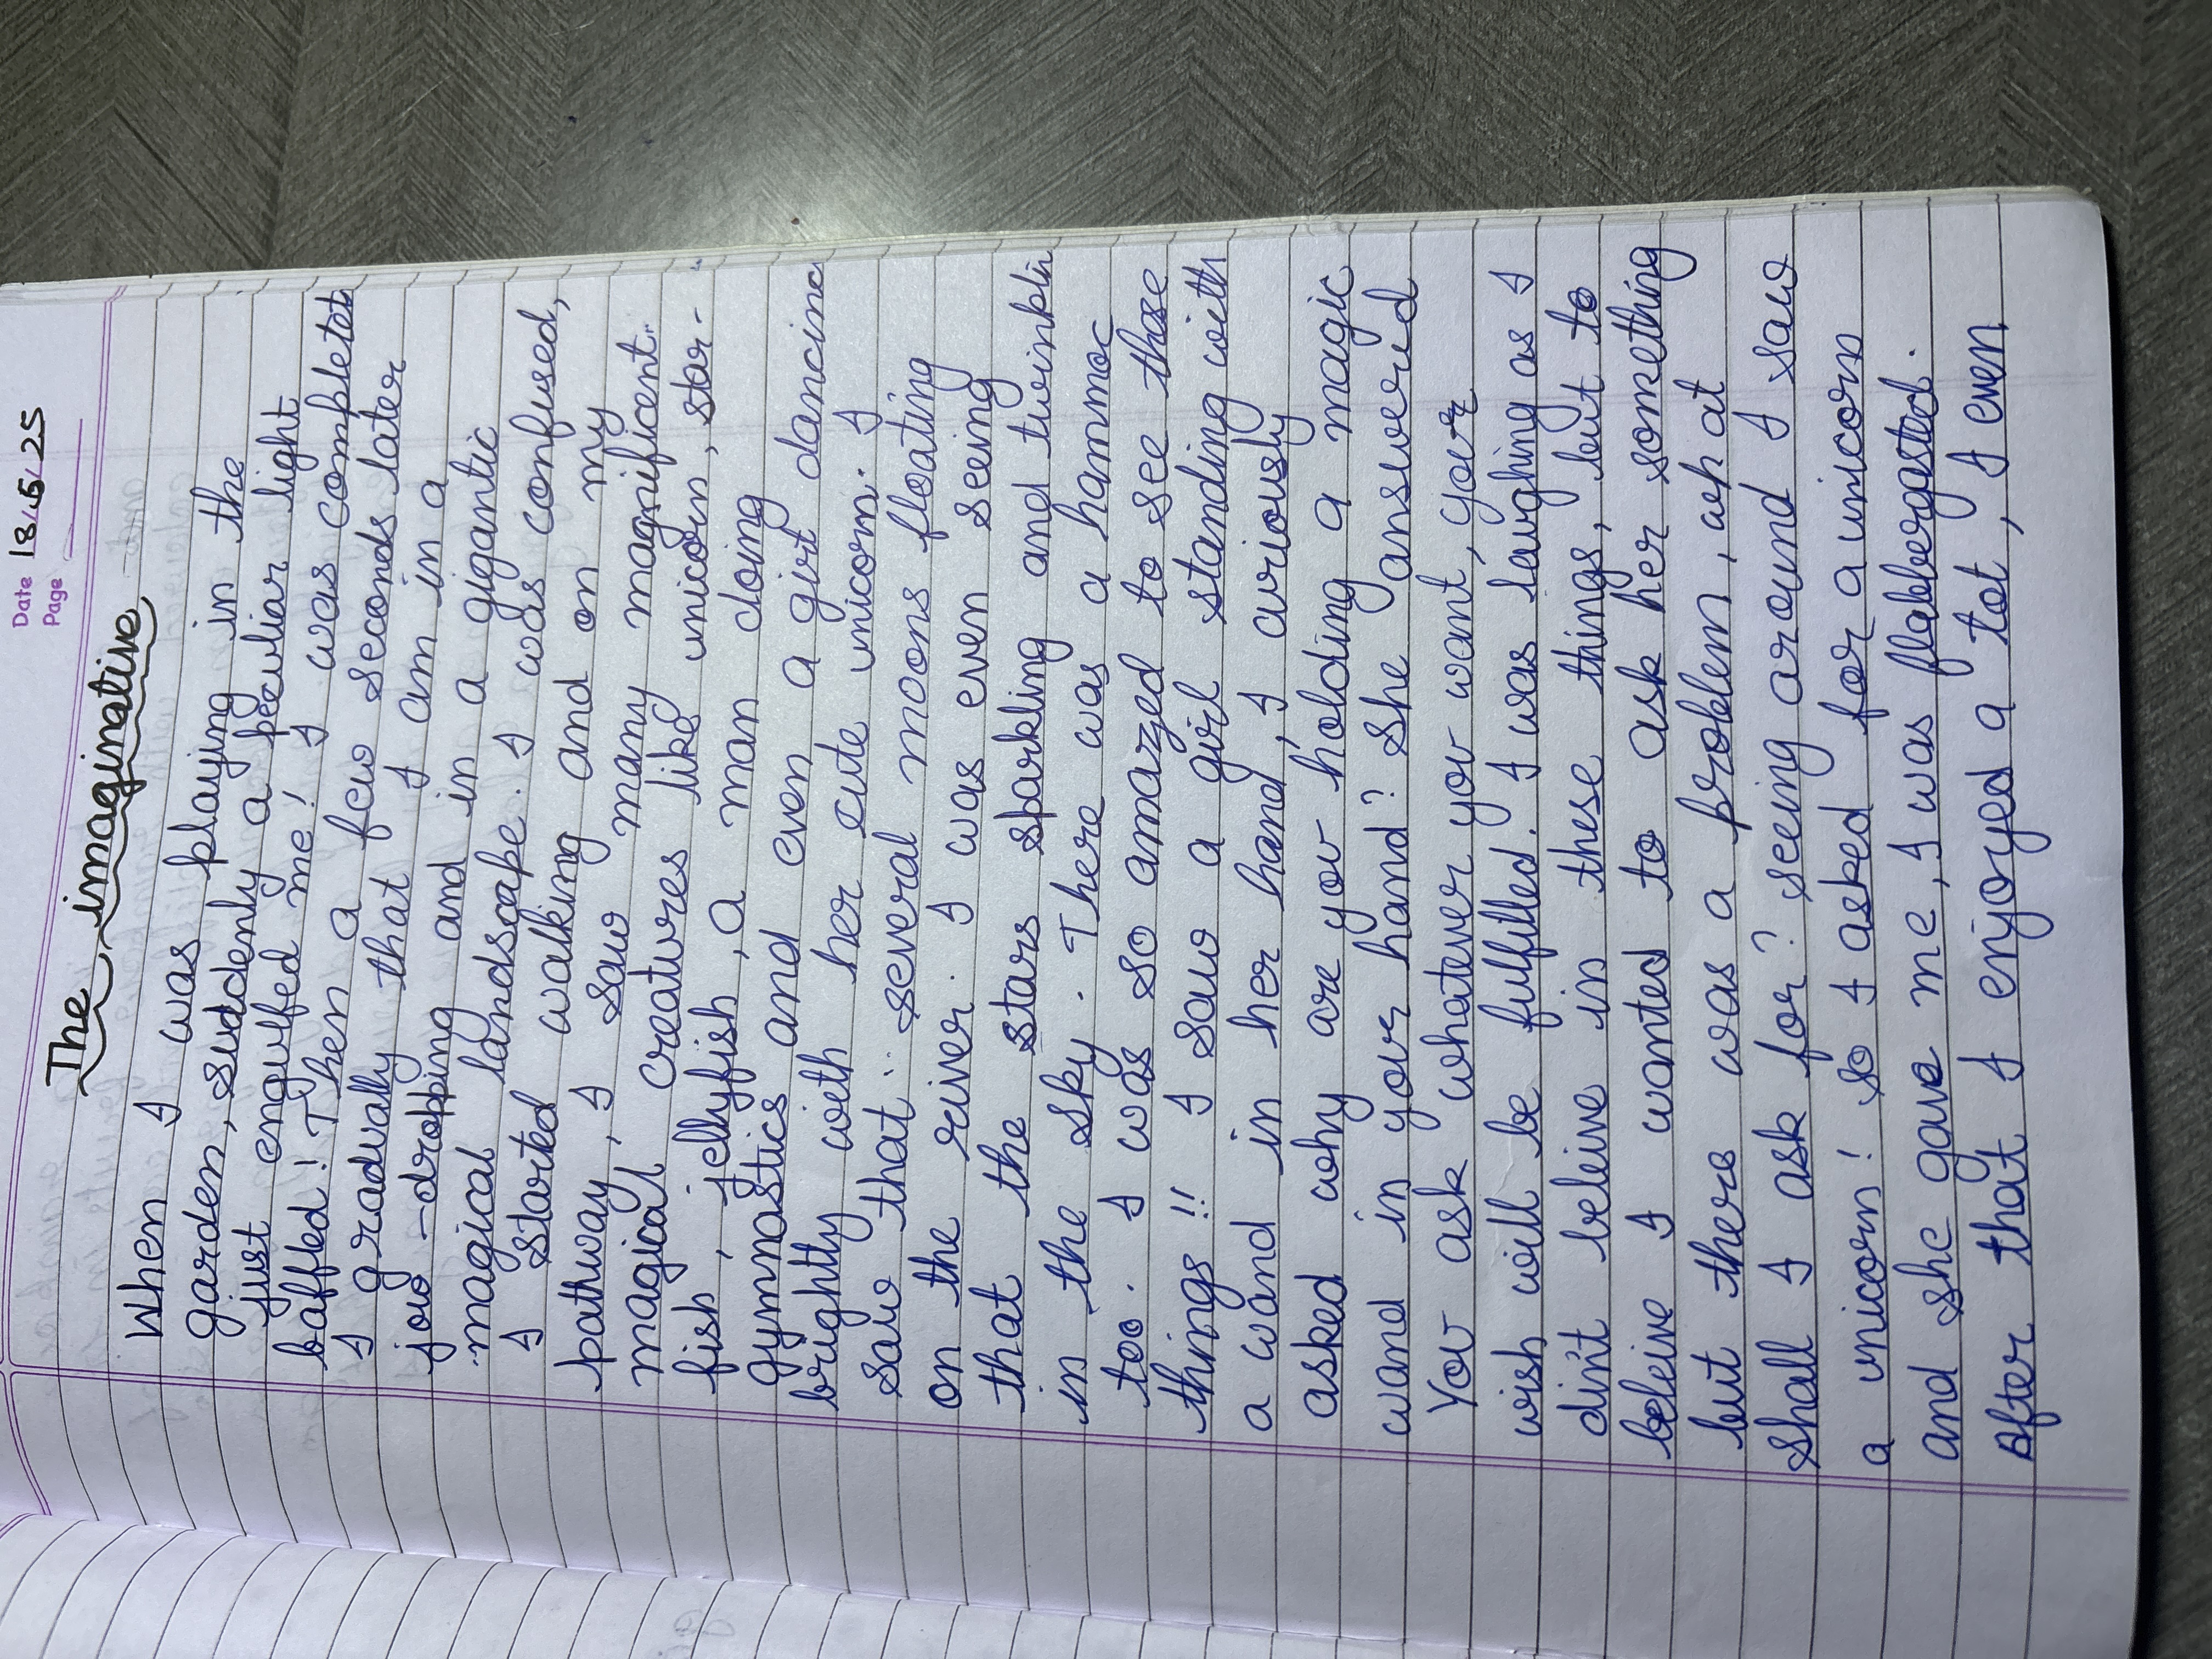 Date 18/5/25
Page
The imaginative
When I was playing in the
garden, suddenly a peculiar light
just engulfed me! I was completel
baffled! Then a few seconds later
I gradually that I am in a
jow-dropping and in a gigantic
magical landscape. I was confused,
I started walking and on my
pathway, I saw many magnificent
magical creatures like unicorn, star-
fish, jellyfish, a man doing
gymnastics and even a girl dancing
brightly with her cute unicorn. I
saw that several moons floating
on the river. I was even seeing
that the stars sparkling and twinkli
in the sky. There was a hammoc
too. I was so amazed to see these
things!! I saw a girl standing with
a wand in her hand, I curiously
asked why are you holding a magic
wand in your hand? She answered
You ask whatever you want, your
wish will be fulfilled. I was laughing as I
din't beleive in these things, but to
beleive I wanted to ask her something
but there was a problem, what
shall I ask for? seeing around I saw
a unicorn! so I asked for a unicorn
and she gave me, I was flabbergasted.
After that I enjoyed a lot, I even